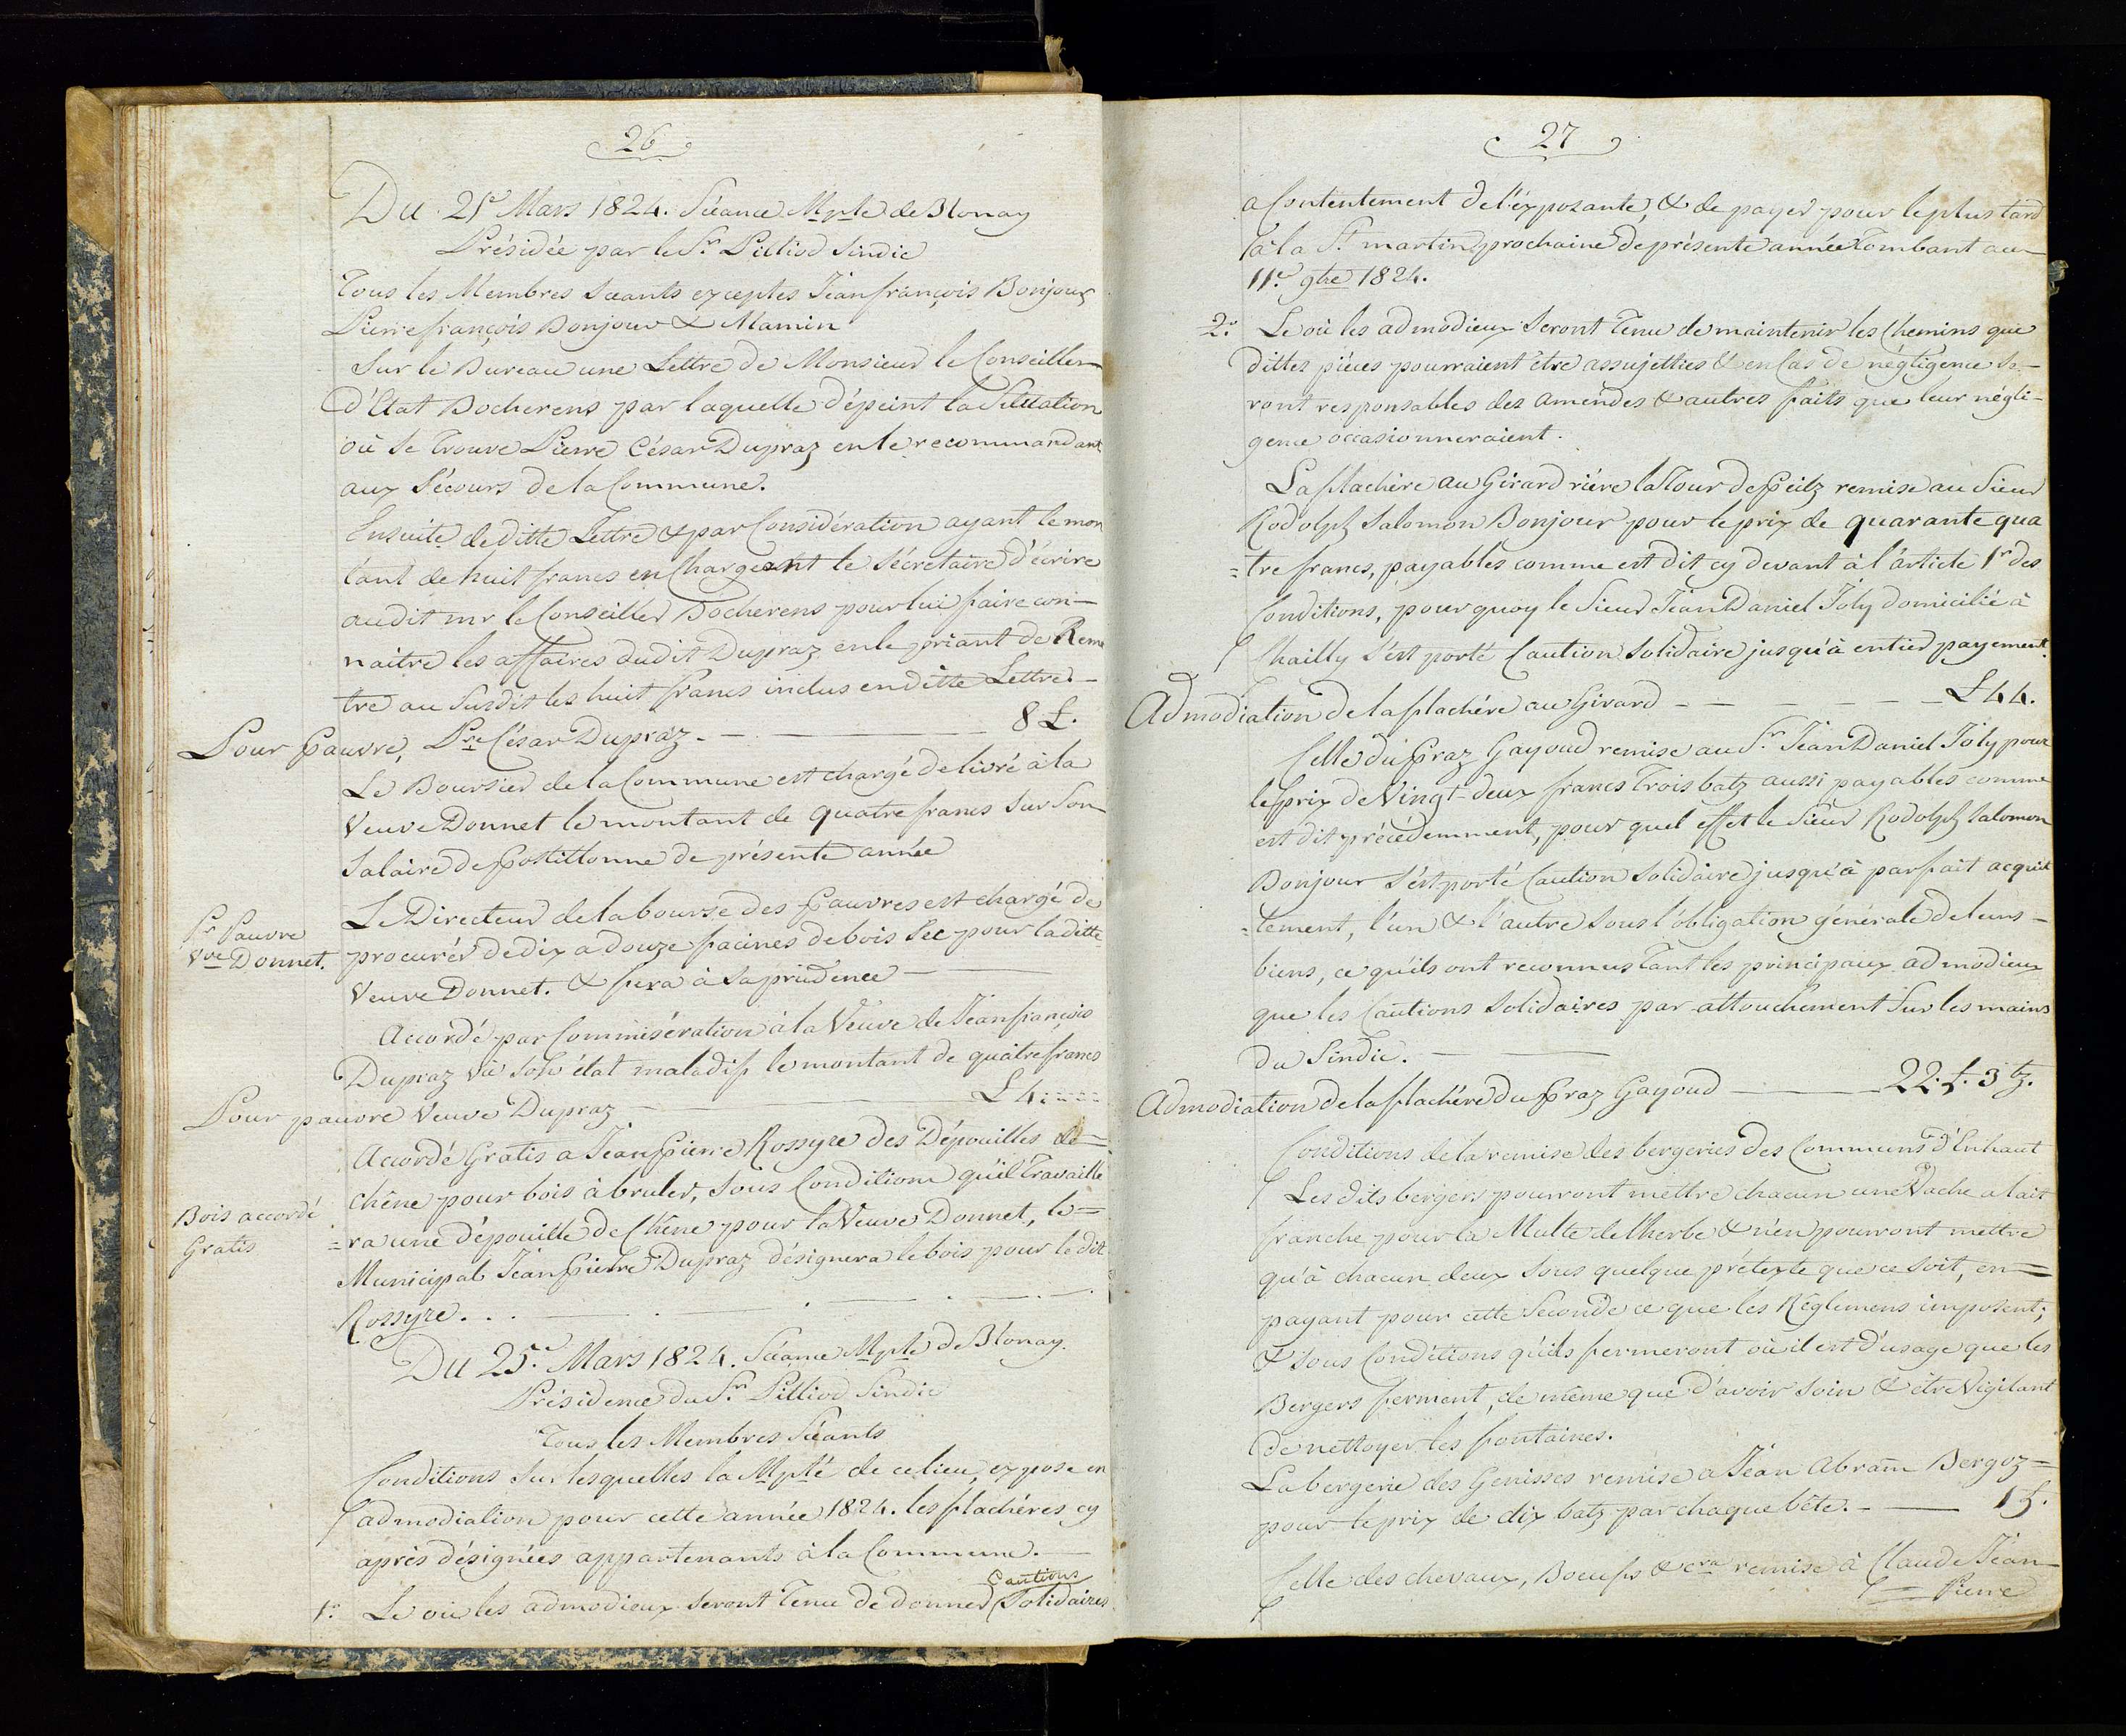 26
Du 21e Mars 1824. Séance Mple de Blonay
Présidée par le Sr. Pilliod Sindic
Tous les Membres Séants exceptes Jean françois Bonjour
Pierre françois Bonjour & Mamin
Sur le Bureau une Lettre de Monsieur le Conseiller
d'Etat Docherens par laquelle d'épeint la Situation
où se trouve Pierre César Dupraz en le recommandant
aux Sécours de la Commune.
Ensuite de ditte Lettre & par Considération ayant le mon
tant de huit francs en Chargeant le Sécretaire d'écrire
audit mr le Conseiller Docherens pour lui faire con-
naitre les affaires dudit Dupraz en le priant de Reme
tre au Susdit les huit francs inclus en ditte Lettre. -
Pour Pauvre, Pre César Dupraz. - 8 £.
Le Boursier de la Commune est chargé de livré à la
Veuve Donnet le montant de quatre francs sur Son
Salaire de Postillonne de présente année
Pr Pauvre
Vve Donnet.
Le Directeur de la bourse des Pauvres est chargé de
procurér de dix a douze facines de bois Sec pour la ditte
Veuve Donnet. & fera à Sa prudence -
Accordé par Commisération à la Veuve de Jean françois
Dupraz vû Son état maladif le montant de quatre francs
Pour pauvre Veuve Dupraz - £ 4:---
Bois accordé
Gratis
Accordé Gratis a Jean Pierre Rossyre des Dépouilles de=
chêne pour bois à bruler, sous Condition qu'il travaille
=ra une dépouille de Chêne pour la Veuve Donnet, le=
Municipal Jean Pierre Dupraz désignera le bois pour le dit
Rossyre...
Du 25e. Mars 1824. Séance Mple de Blonay.
Présidence du Sr. Pilliod Sindic
Tous les Membres Séants
Conditions sur lesquelles la Mplé de ce lieu, expose en
admodiation pour cette année 1824. les flachéres cy
après désignées appartenants à la Commune. -
Cautions
1o. Le où les admodieux seront tenu de donner Solidaires
27
a Contentement de l'éxposante, & de payer pour le plus tard
à la St. martin prochaine de présente année tombant au
11e. 9bre 1824.
2o. Le où les admodieux seront tenu de maintenir les Chemins que
dittes piéces pourraient être assujetties & en Cas de négligence Se-
ront responsables des amendes & autres faits que leur négli-
gence occasionneraient.
La flachére au Girard riére la Tour de Peilz remise au Sieur
Rodolph Salomon Bonjour pour le prix de quarante qua
=tre francs, payables comme est dit cy devant à l'article 1r des
Conditions, pour quoy le Sieur Jean Daniel Joly domicilié à
Chailly s'est porté Caution Solidaire jusqu'à entier payement.
Admodiation de la flachére au Girard - - - - - £ 44.
Celle du Praz Gayoud remise au Sr. Jean Daniel Joly pour
le prix de Vingt-deux francs trois batz aussi payables comme
est dit précédemment, pour quel effet le Sieur Rodolph Salomon
Bonjour s'est porté Caution Solidaire jusqu'à parfait acquit
=tement, l'un & l'autre sous l'obligation générale de leurs -
biens, ce qu'ils ont reconnus tant les principaux admodieux
que les Cautions Solidaires par attouchement Sur les mains
du Sindic. -
Admodiation de la flachére du Praz Gayoud - 22. f. 3 bz.
Conditions de la remise des bergeries des Communs d'Enhaut
Les dits bergers pourront mettre chacun une Vache a lait
franche pour la Multe de lherbe & n'en pourront mettre
qu'à chacun deux sous quelque prétexte que ce soit, en=
payant pour cette Seconde ce que les Réglemens imposent;
& sous Conditions qu'ils fermeront où il est d'usage que les
Bergers ferment, de même que d'avoir soin & être Vigilant
de nettoyer les fontaines.
La bergerie des Genisses remise a Jean Abram Bergoz=
pour le prix de dix batz par chaque bête. - 1 f.
Celle des chevaux, Boeufs & cra remise à Claude Jean
Pierre